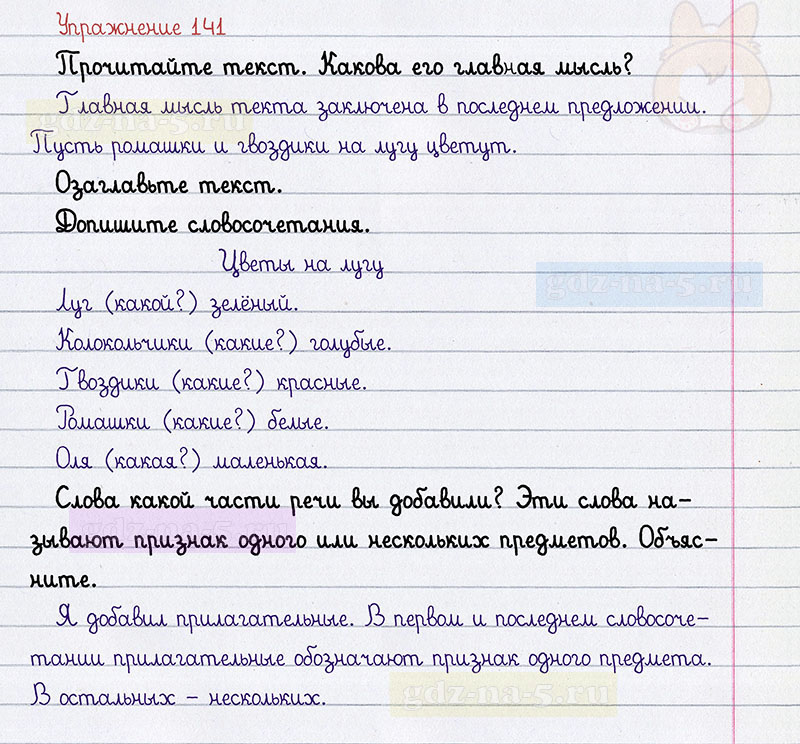 Упражнение 141
Прочитайте текст. Какова его главная мысль?
Главная мысль текта заключена в последнем предложении.
gdz-na-5.ru
Пусть ромашки и гвоздики на лугу цветут.
Озаглавьте текст.
Допишите словосочетания.
Цветы на лугу
gdz-na-5.ru
Луг (какой?) зелёный.
Колокольчики (какие?) голубые.
Гвоздики (какие?) красные.
Ромашки (какие?) белые.
Оля (какая?) маленькая.
Слова какой части речи вы добавили? Эти слова на-
gdz-na-5.ru
зывают признак одного или нескольких предметов. Объяс-
ните.
Я добавил прилагательные. В первом и последнем словосоче-
тании прилагательные обозначают признак одного предмета.
В остальных – нескольких.
gdz-na-5.ru